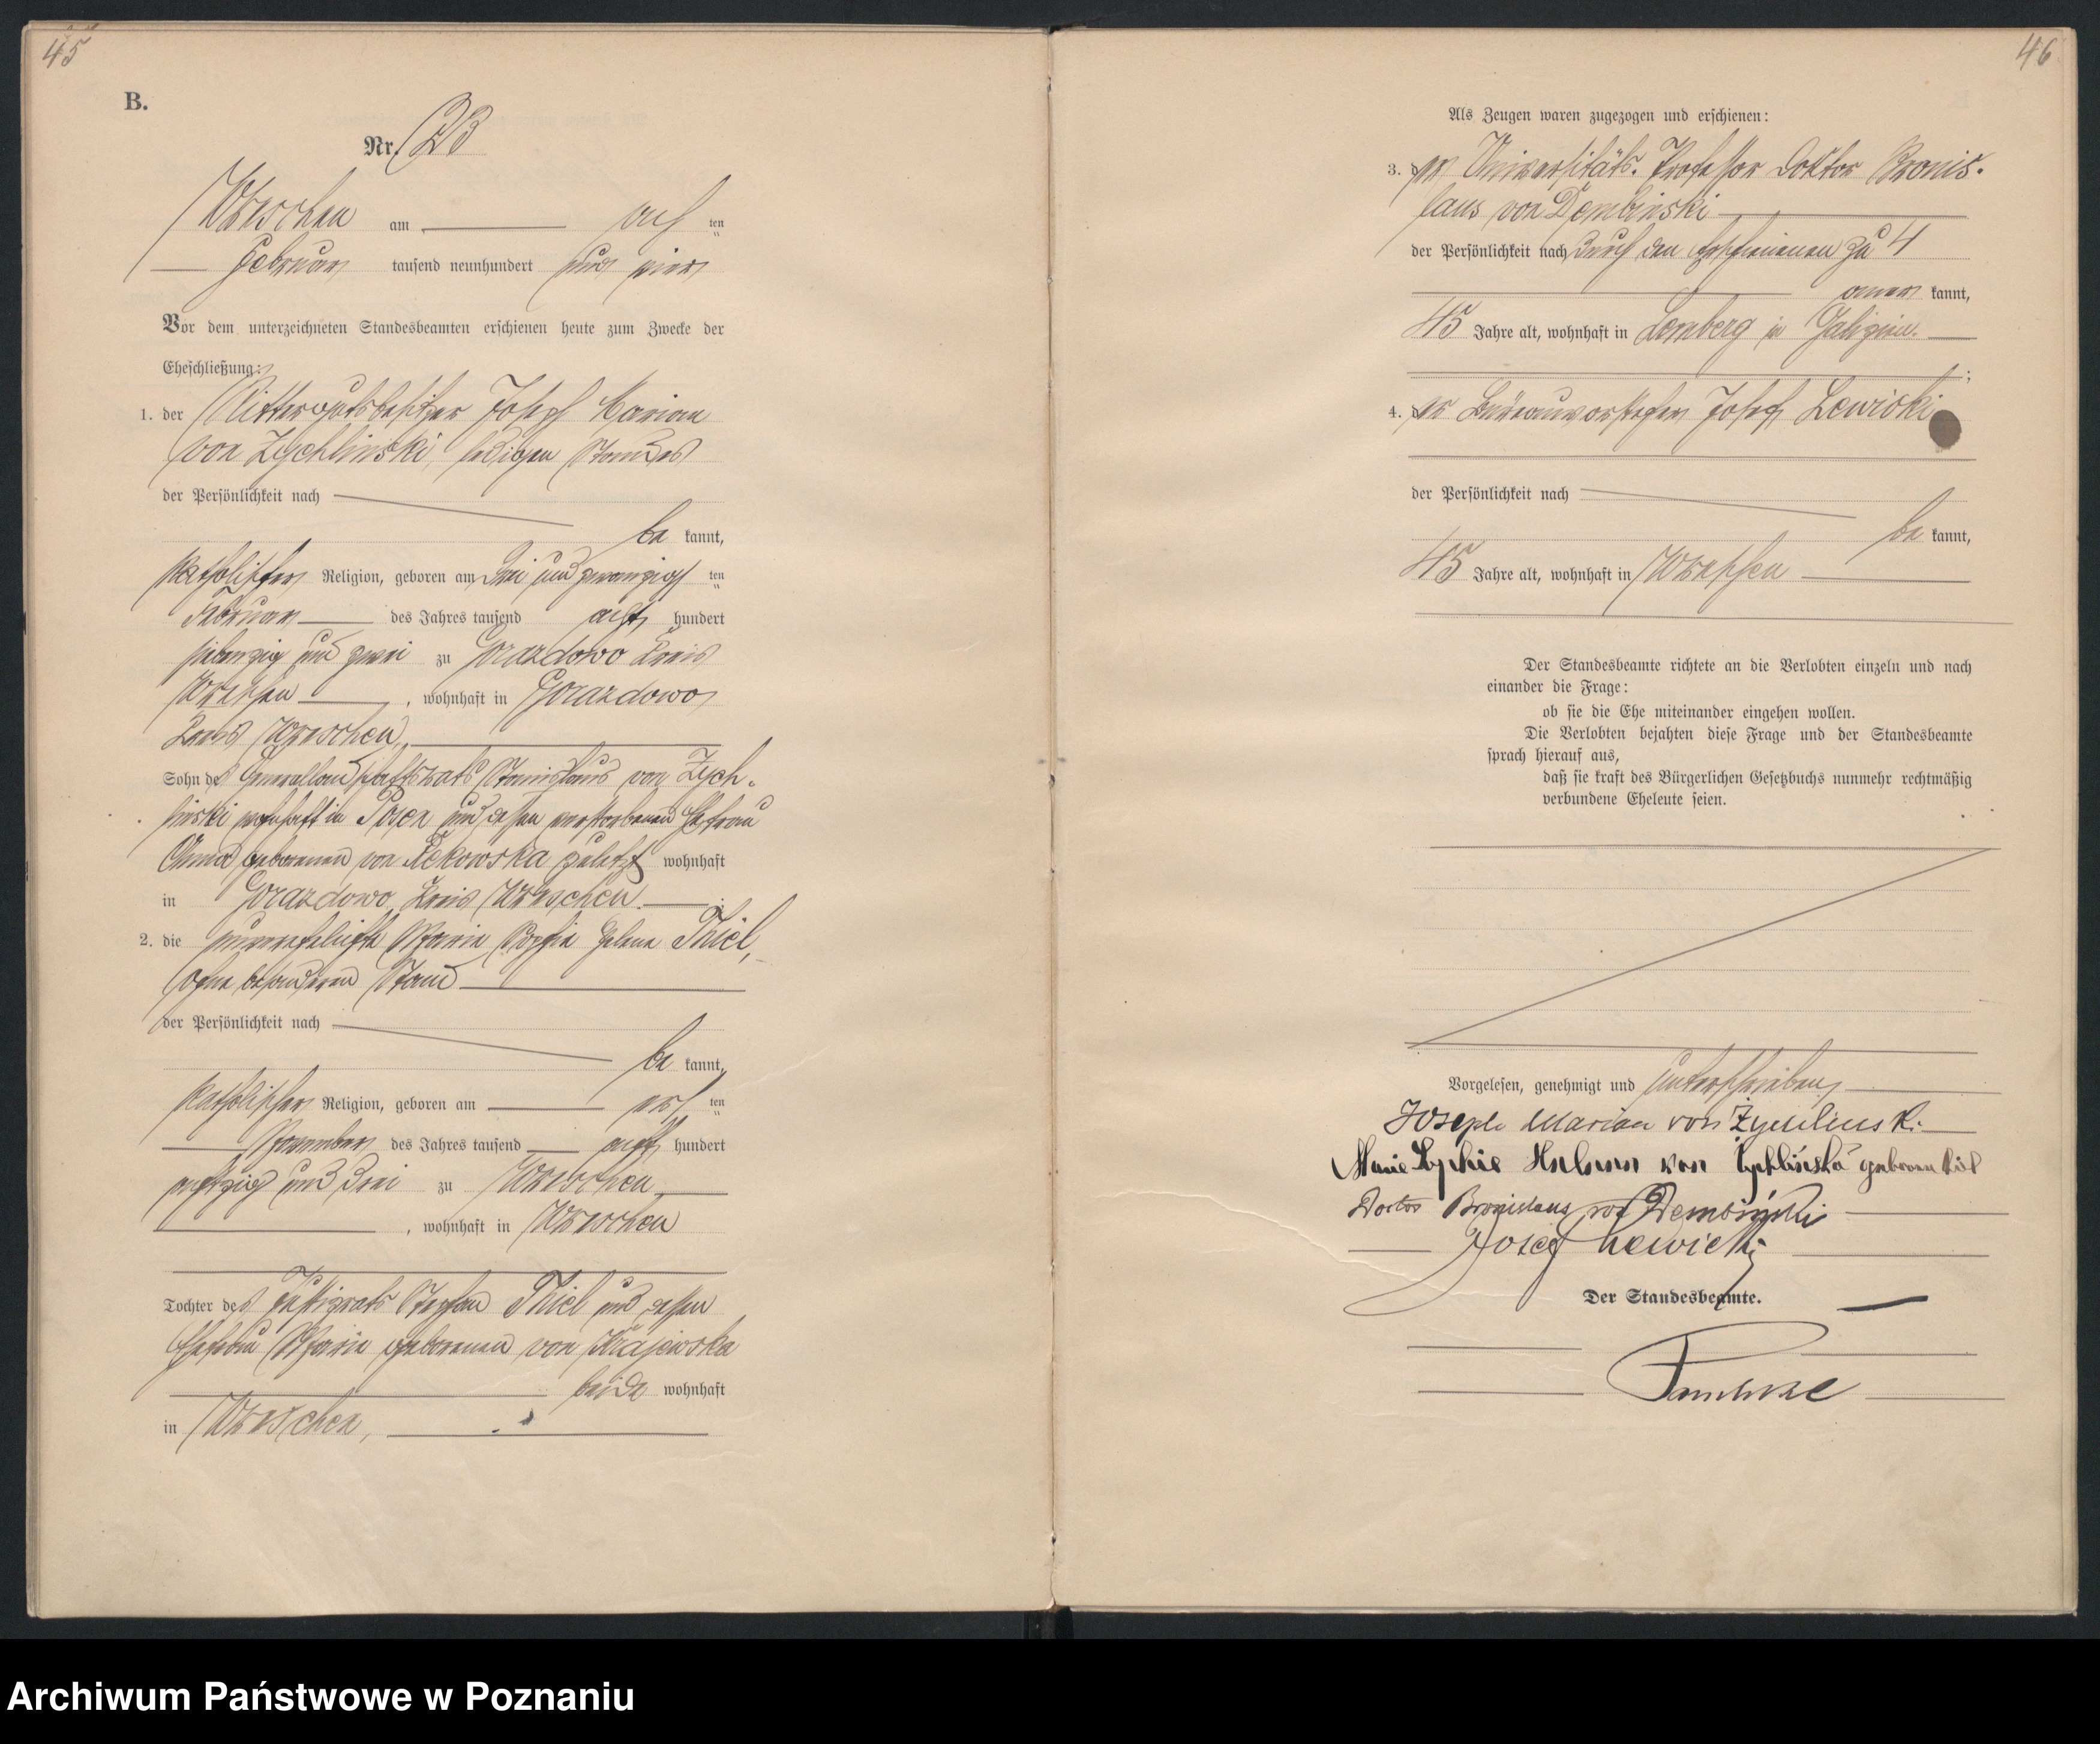 45
B.
Nr. 23
Wreschen am acht ten
Februar tausend neunhundert und vier
Vor dem unterzeichneten Standesbeamten erschienen heute zum Zwecke der
Eheschließung:
1. der Rittergutsbesitzer Joseph Marian
von Zychlinski, ledigen Standes
der Persönlichkeit nach
be kannt,
katholischer Religion, geboren am drei und zwanzigs ten
Februar des Jahres tausend acht hundert
siebenzig und zwei zu Gorazdowo Kreis
Wreschen, wohnhaft in Gorazdowo
Kreis Wreschen,
Sohn des Generallandschaftsrats Stanislaus von Zych-
linski wohnhaft in Posen und dessen verstorbenen Ehefrau
Anna geborenen von zuletzt wohnhaft
in Gorazdowo, Kreis Wreschen.
2. die unverehelichte Maria Sophie Helene Thiel,
ohne besonderen Stand
der Persönlichkeit nach
be kannt,
katholischer Religion, geboren am ers ten
November des Jahres tausend acht hundert
achtzig und drei zu Wreschen
, wohnhaft in Wreschen
Tochter des Justizrats Stephan Thiel und dessen
Ehefrau Maria geborenen von Krajewska
beide wohnhaft
in Wreschen,
46
Als Zeugen waren zugezogen und erschienen:
3. der Universitäts-Professor Doktor Bronis-
laus von Dembinski
der Persönlichkeit nach durch den Erschienenen zu 4
aner kannt,
45 Jahre alt, wohnhaft in Lemberg in Galizien.
;
4. der Büreauvorsteher Josef Lewicki
der Persönlichkeit nach
be kannt,
45 Jahre alt, wohnhaft in Wreschen
Der Standesbeamte richtete an die Verlobten einzeln und nach
einander die Frage:
ob sie die Ehe miteinander eingehen wollen.
Die Verlobten bejahten diese Frage und der Standesbeamte
sprach hierauf aus,
daß sie kraft des Bürgerlichen Gesetzbuchs nunmehr rechtmäßig
verbundene Eheleute seien.
Vorgelesen, genehmigt und unterschrieben
Joseph Marian von Żychlinski
Marie Sophie Helene von Żychlińska geborene Thiel
Doctor Bronislaus von Dembiński
Josef Lewicki
Der Standesbeamte.
Archiwum Państwowe w Poznaniu